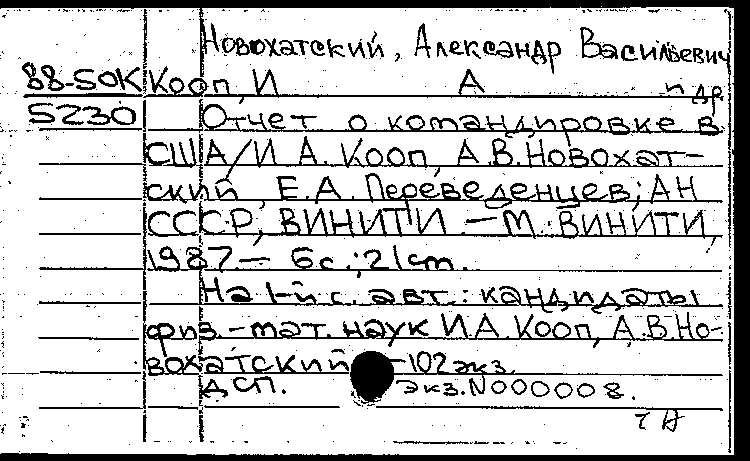 Новохатский, Александр Васильевич
88-50К Кооп, И А и др
5230 Отчет о командировке в
США/И А. Кооп, А.В.Новохат-
ский, Е.А. Переведенцев; АН
СССР, ВИНИТИ. — М.: ВИНИТИ,
1987.— 6с.; 21cm.
На 1-й с. авт.: кандидаты
физ.-мат. наук И.А. Кооп, А.В.Но-
вохатский —102экз.
ДСП. экз.N000008.